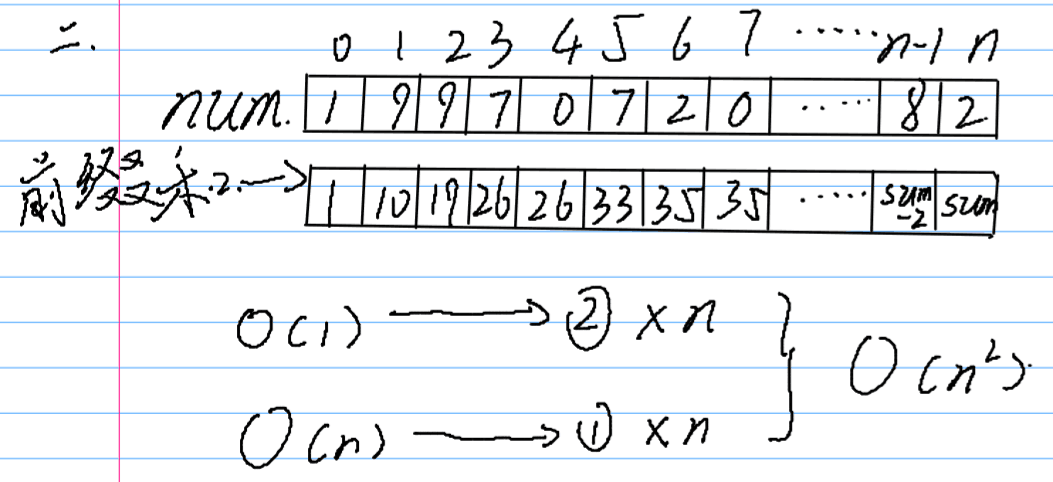 二.
0 1 2 3 4 5 6 7 ······ n-1 n
num. 1 9 9 7 0 7 2 0 ······ 8 2
前缀 2. → 1 10 19 26 26 33 35 35 ······ sum-2 sum
O(1) → ② × n
O(n²)
O(n) → ① × n